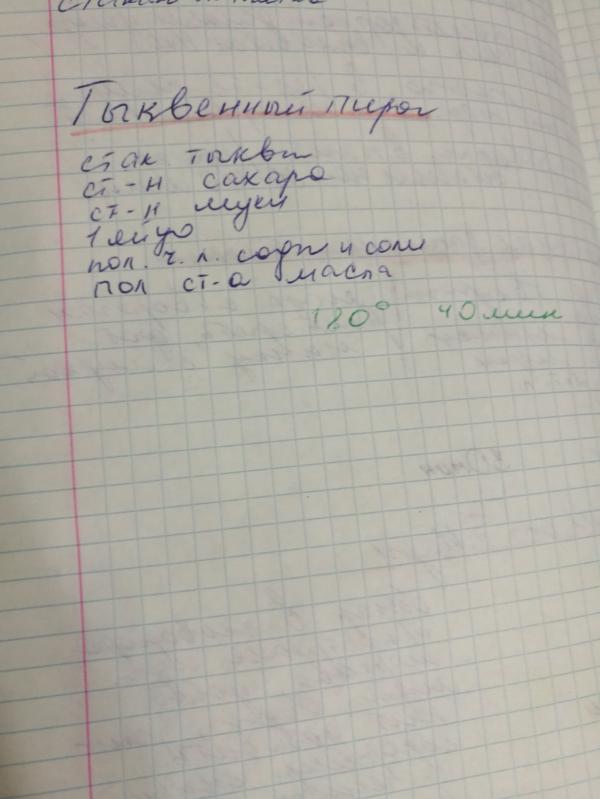 Тыквенный пирог
стак тыквы
ст-н сахара
ст-н муки
1 яйцо
пол. ч. л. соды и соли
пол ст-а масла
180° 40 мин